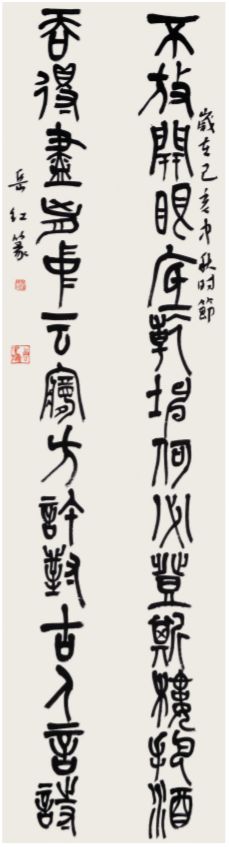 不放開眼底乾坤何必登斯樓把酒
吞得盡胸中云夢方許對古人言詩
歲在己亥中秋时節
岳红篆